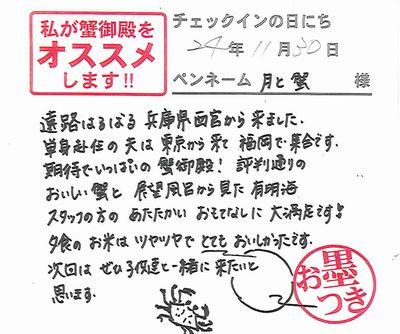 私が蟹御殿を
オススメ
します!!
チェックインの日にち
24年 11月 30日
ペンネーム 月と蟹 様
遠路はるばる 兵庫県西宮から来ました。
単身赴任の夫は東京から来て 福岡で集合です。
期待でいっぱいの 蟹御殿! 評判通りの
おいしい蟹と 展望風呂から見た 有明海
スタッフの方の あたたかい おもてなしに 大満足です!
夕食の お米は ツヤツヤで とても おいしかったです。
次回は ぜひ子供達と一緒に 来たいと
思います。
墨
おつき